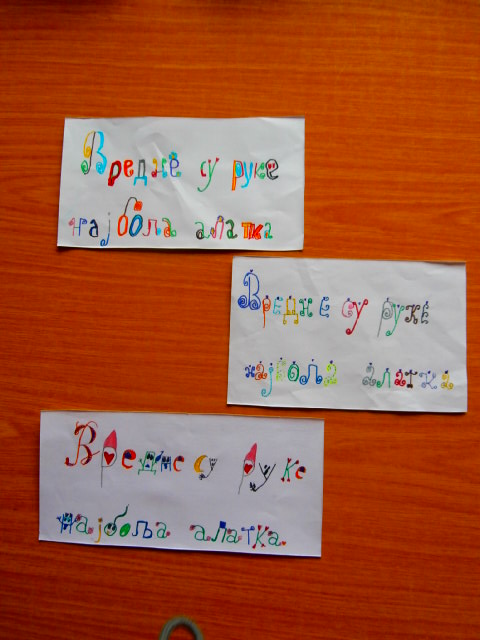 Вредне су руке
најбола алатка
Вредне су руке
најбола алатка
Вредне су руке
најбоља алатка